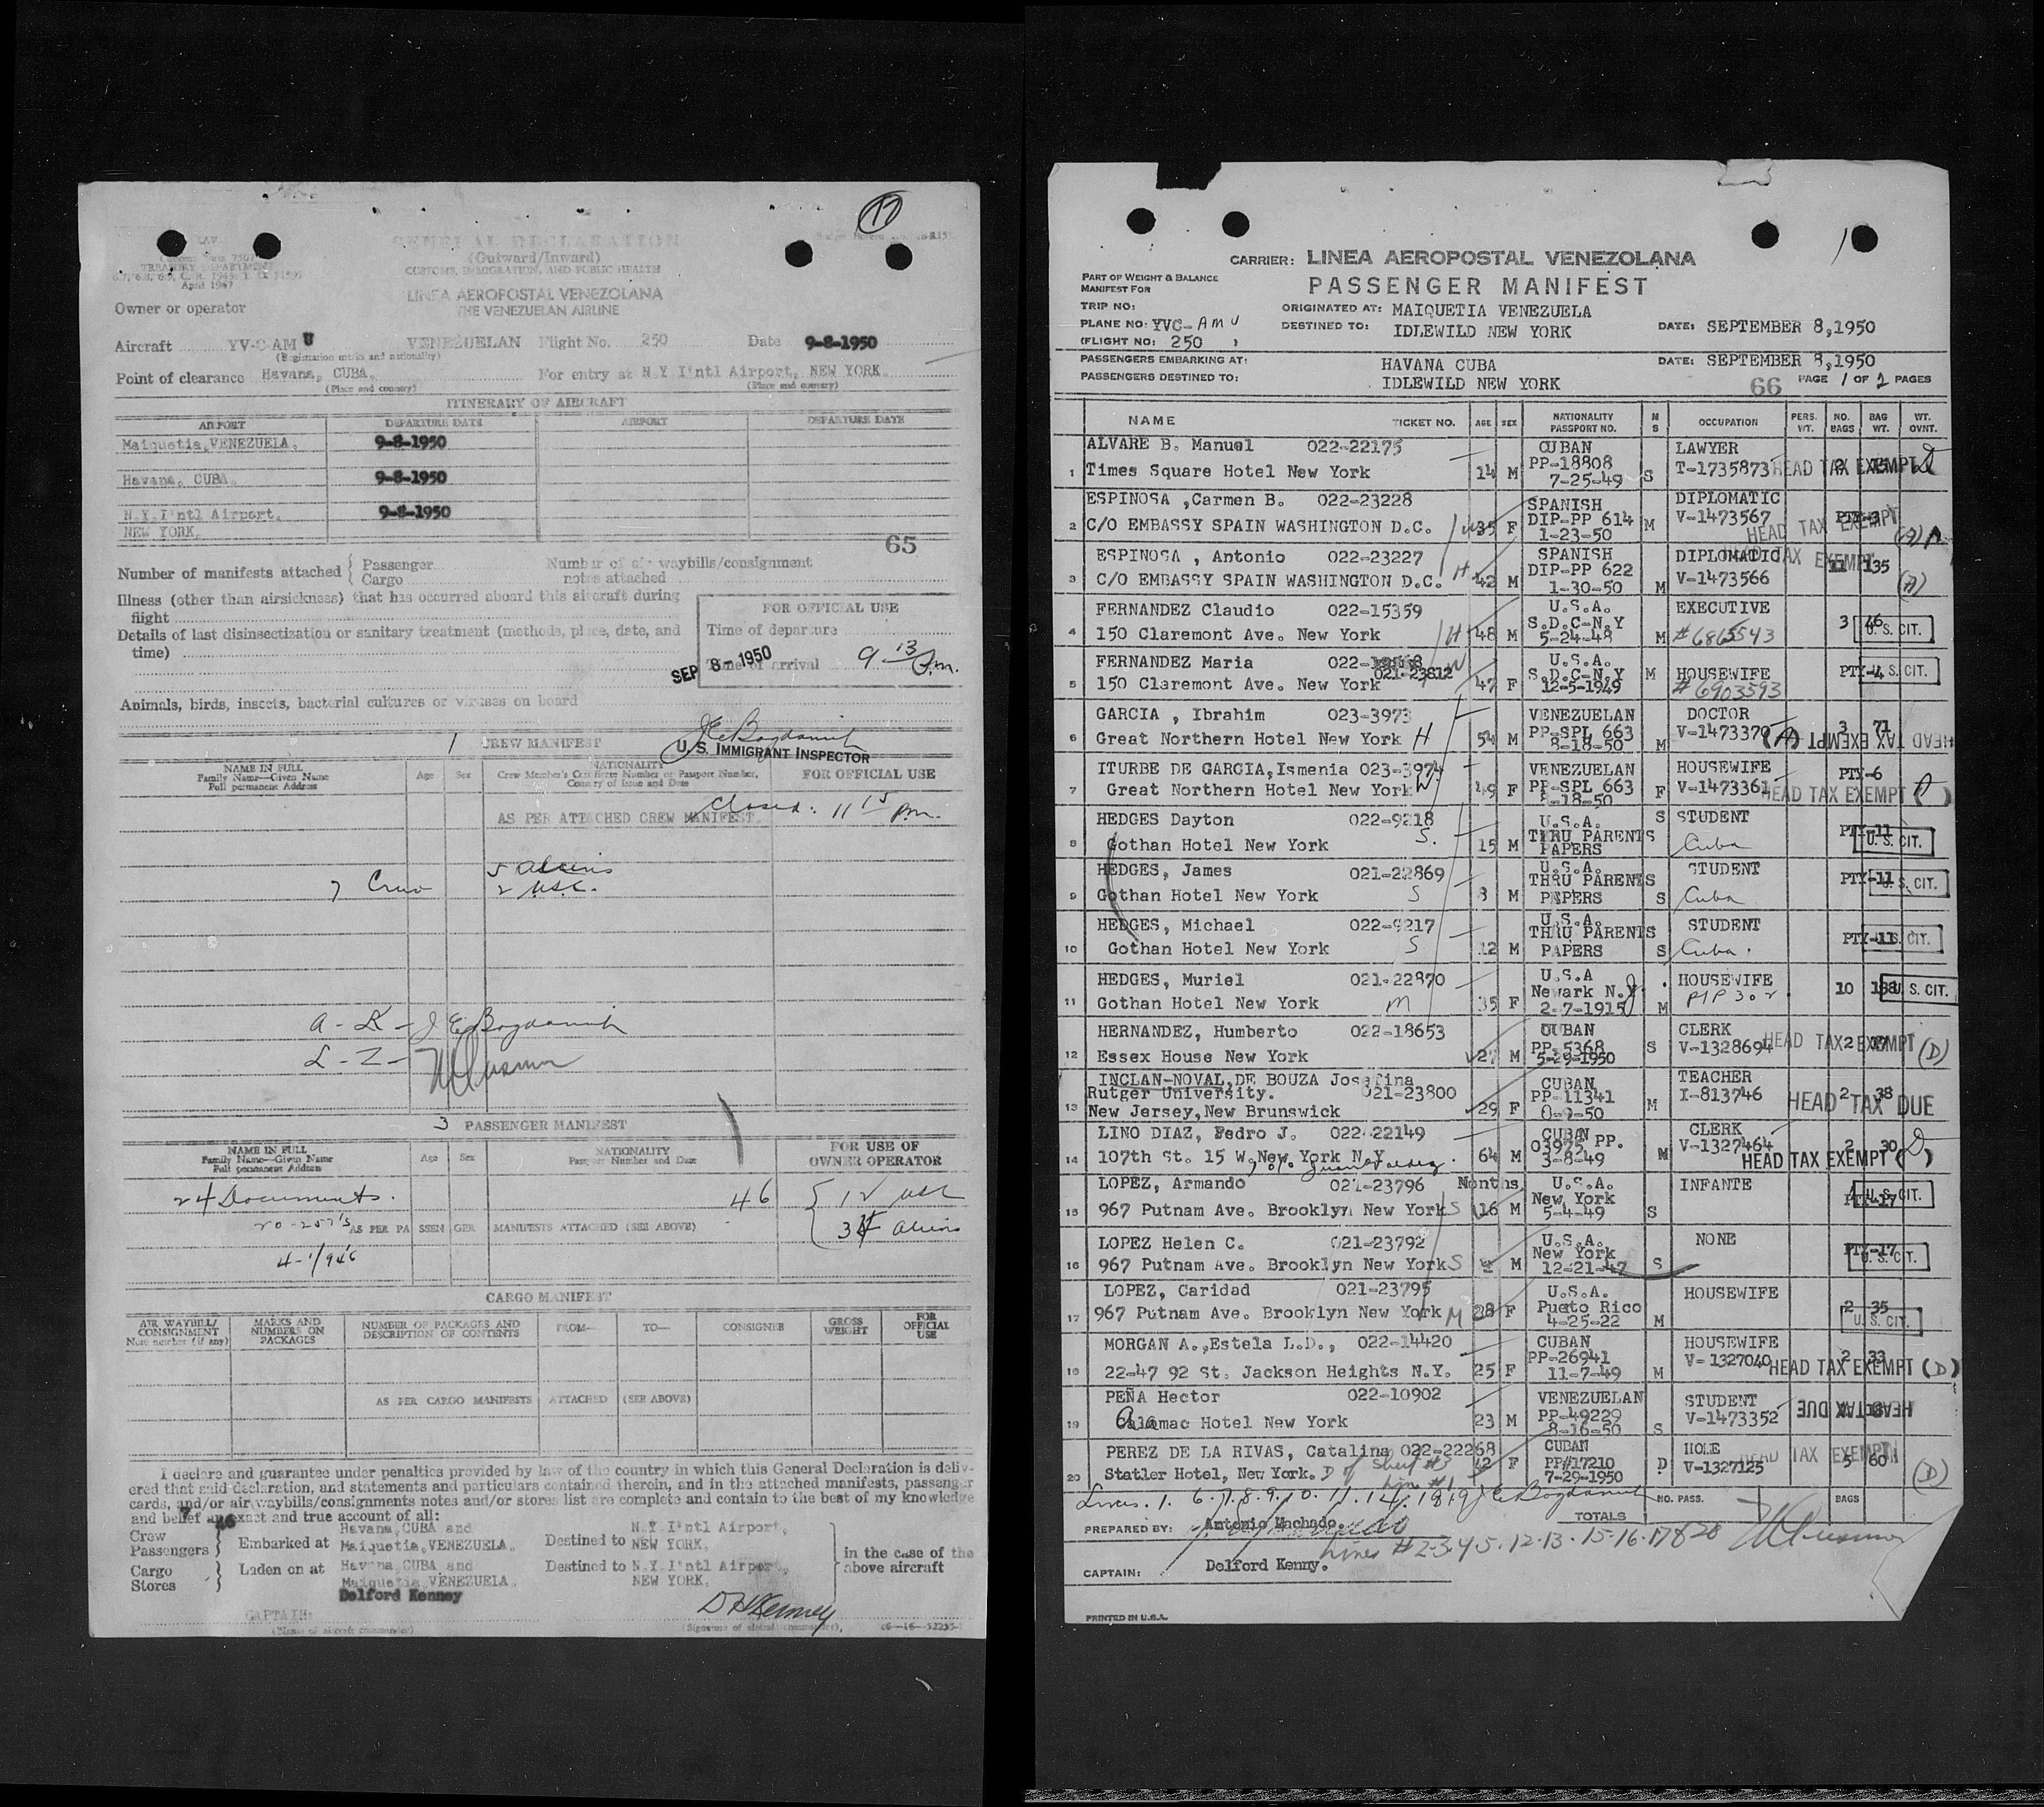 17
LAV
Customs Form 7507
TREASURY DEPARTMENT
April 1947
GENERAL DECLARATION
(Outward/Inward)
CUSTOMS, IMMIGRATION, AND PUBLIC HEALTH
LINEA AEROPOSTAL VENEZOLANA
THE VENEZUELAN AIRLINE
Owner or operator
Aircraft YV-C-AM U VENEZUELAN Flight No. 250 Date 9-8-1950
(Registration marks and nationality)
Point of clearance Havana, CUBA. For entry at N.Y I'ntl Airport, NEW YORK.
(Place and country) (Place and country)
ITINERARY OF AIRCRAFT
AIRPORT DEPARTURE DATE AIRPORT DEPARTURE DATE
Maiquetia, VENEZUELA. 9-8-1950
Havana, CUBA. 9-8-1950
N.Y. I'ntl Airport. 9-8-1950
NEW YORK.
65
Number of manifests attached { Passenger Number of air waybills/consignment
Cargo notes attached
Illness (other than airsickness) that has occurred aboard this aircraft during
flight
Details of last disinsectization or sanitary treatment (methods, place, date, and
time)
FOR OFFICIAL USE
Time of departure
SEP 8- 1950
Time of arrival 9 13 P.m.
Animals, birds, insects, bacterial cultures or viruses on board
U. S. IMMIGRANT INSPECTOR
1 CREW MANIFEST
NAME IN FULL
Family Name—Given Name
Full permanent Address
Age Sex
NATIONALITY
Crew Member's Certificate Number or Passport Number,
Country of Issue and Date
FOR OFFICIAL USE
Closed: 11 15 p.m.
AS PER ATTACHED CREW MANIFEST.
7 Crew 5 Aliens
2 USC.
A - K - J E Bogdanich
L - Z -
3 PASSENGER MANIFEST
NAME IN FULL
Family Name—Given Name
Full permanent Address
Age Sex
NATIONALITY
Passport Number and Date
FOR USE OF
OWNER OPERATOR
24 Documents. 46 { 12 USC
20-257's AS PER PASSENGER MANIFESTS ATTACHED (SEE ABOVE) 34 Aliens
4-1/946
CARGO MANIFEST
AIR WAYBILL/
CONSIGNMENT
Note number (if any)
MARKS AND
NUMBERS ON
PACKAGES
NUMBER OF PACKAGES AND
DESCRIPTION OF CONTENTS
FROM— TO— CONSIGNEE
GROSS
WEIGHT
FOR
OFFICIAL
USE
AS PER CARGO MANIFESTS ATTACHED (SEE ABOVE)
I declare and guarantee under penalties provided by law of the country in which this General Declaration is deliv-
ered that said declaration, and statements and particulars contained therein, and in the attached manifests, passenger
cards, and/or air waybills/consignments notes and/or stores list are complete and contain to the best of my knowledge
and belief an exact and true account of all:
Crew 7
Passengers 46 } Embarked at Havana, CUBA and Maiquetia, VENEZUELA. Destined to N.Y I'ntl Airport, NEW YORK.
Cargo
Stores } Laden on at Havana, CUBA and Maiquetia, VENEZUELA. Destined to N.Y. I'ntl Airport, NEW YORK.
in the case of the
above aircraft
Delford Kenney
CAPTAIN:
(Name of aircraft commander)
D H Kenney
(Signature of aircraft commander),
CARRIER: LINEA AEROPOSTAL VENEZOLANA
PART OF WEIGHT & BALANCE
MANIFEST FOR
PASSENGER MANIFEST
TRIP NO: ORIGINATED AT: MAIQUETIA VENEZUELA
PLANE NO: YVC-AMU DESTINED TO: IDLEWILD NEW YORK DATE: SEPTEMBER 8,1950
(FLIGHT NO: 250 )
PASSENGERS EMBARKING AT: HAVANA CUBA DATE: SEPTEMBER 8,1950
PASSENGERS DESTINED TO: IDLEWILD NEW YORK 66 PAGE 1 OF 2 PAGES
NAME TICKET NO. AGE SEX NATIONALITY PASSPORT NO. M S OCCUPATION PERS. WT. NO. BAGS BAG WT. WT. OVNT.
ALVARE B. Manuel 022-22175 CUBAN LAWYER
1 Times Square Hotel New York 14 M PP-18808 S T-1735873 HEAD TAX EXEMPT D
7-25-49
ESPINOSA ,Carmen B. 022-23228 SPANISH DIPLOMATIC
2 C/O EMBASSY SPAIN WASHINGTON D.C. W 35 F DIP-PP 614 M V-1473567 PTY-3 HEAD TAX EXEMPT
1-23-50
ESPINOSA , Antonio 022-23227 SPANISH DIPLOMATIC HEAD TAX EXEMPT
3 C/O EMBASSY SPAIN WASHINGTON D.C. H 42 M DIP-PP 622 M V-1473566 11 135 (A)
1-30-50
FERNANDEZ Claudio 022-15359 U.S.A. EXECUTIVE
4 150 Claremont Ave. New York H 48 M S.D.C-N.Y M #6865543 3 46 U.S. CIT.
5-24-48
FERNANDEZ Maria 022- U.S.A.
021-23812 W
5 150 Claremont Ave. New York 47 F S.D.C-N.Y M HOUSEWIFE PTY-4 U.S. CIT.
12-5-1949 #6903593
GARCIA , Ibrahim 023-3973 VENEZUELAN DOCTOR
6 Great Northern Hotel New York H 54 M PP-SPL 663 M V-1473370 (A) 3 71 HEAD TAX EXEMPT
8-18-50
ITURBE DE GARCIA,Ismenia 023-3974 VENEZUELAN HOUSEWIFE PTY-6
7 Great Northern Hotel New York W 49 F PP-SPL 663 F V-1473361 HEAD TAX EXEMPT ( )
8-18-50
HEDGES Dayton 022-9218 U.S.A. S STUDENT
8 Gothan Hotel New York S. 15 M THRU PARENTS PAPERS Cuba PTY-11 U.S. CIT.
HEDGES, James 021-22869 U.S.A. STUDENT
9 Gothan Hotel New York S 8 M THRU PARENTS PAPERS S Cuba PTY-11 U.S. CIT.
HEDGES, Michael 022-9217 U.S.A. STUDENT
10 Gothan Hotel New York S 12 M THRU PARENTS PAPERS S Cuba. PTY-11 U.S. CIT.
HEDGES, Muriel 021-22870 U.S.A HOUSEWIFE
11 Gothan Hotel New York M 35 F Newark N.Y. M 10 188 U.S. CIT.
2-7-1915
HERNANDEZ, Humberto 022-18653 CUBAN CLERK
12 Essex House New York 27 M PP-5368 S V-1328694 HEAD TAX EXEMPT (D)
5-29-1950
INCLAN-NOVAL,DE BOUZA Josefina CUBAN TEACHER
Rutger University. 021-23800 PP-11341 I-813746 2 38
13 New Jersey,New Brunswick 29 F M HEAD TAX DUE
LINO DIAZ, Pedro J. 022-22149 CUBAN CLERK
14 107th St. 15 W.New York N.Y. 64 M 03975 PP. M V-1327464 2 30
3-8-49 HEAD TAX EXEMPT ( )
LOPEZ, Armando 021-23796 Months U.S.A. INFANTE
15 967 Putnam Ave. Brooklyn New York S 16 M New York S PTY-17 U.S. CIT.
5-4-49
LOPEZ Helen C. 021-23792 U.S.A. NONE
16 967 Putnam Ave. Brooklyn New York S 2 M New York S PTY-17 U.S. CIT.
12-21-47
LOPEZ, Caridad 021-23795 U.S.A. HOUSEWIFE
17 967 Putnam Ave. Brooklyn New York M 28 F Pueto Rico M 2 35 U.S. CIT.
4-25-22
MORGAN A.,Estela L.D., 022-14420 CUBAN HOUSEWIFE
18 22-47 92 St. Jackson Heights N.Y. 25 F PP-26941 M V-1327040 2 33 HEAD TAX EXEMPT (D)
11-7-49
PEÑA Hector 022-10902 VENEZUELAN STUDENT
19 Calamac Hotel New York 23 M PP-49229 S V-1473352 HEAD TAX DUE
8-16-50
PEREZ DE LA RIVAS, Catalina 022-22268 CUBAN HOLE
20 Statler Hotel, New York. D of Sheet #3 42 F PP#17210 D V-1327125 5 60 HEAD TAX EXEMPT (D)
line #1 7-29-1950
Lines. 1. 6.7.8.9.10.11.14.18.19 J E Bogdanich NO. PASS. BAGS
TOTALS
PREPARED BY: Antonio Machado.
Lines #2-3-4-5-12-13-15-16-17&20
CAPTAIN: Delford Kenny.
PRINTED IN U.S.A.